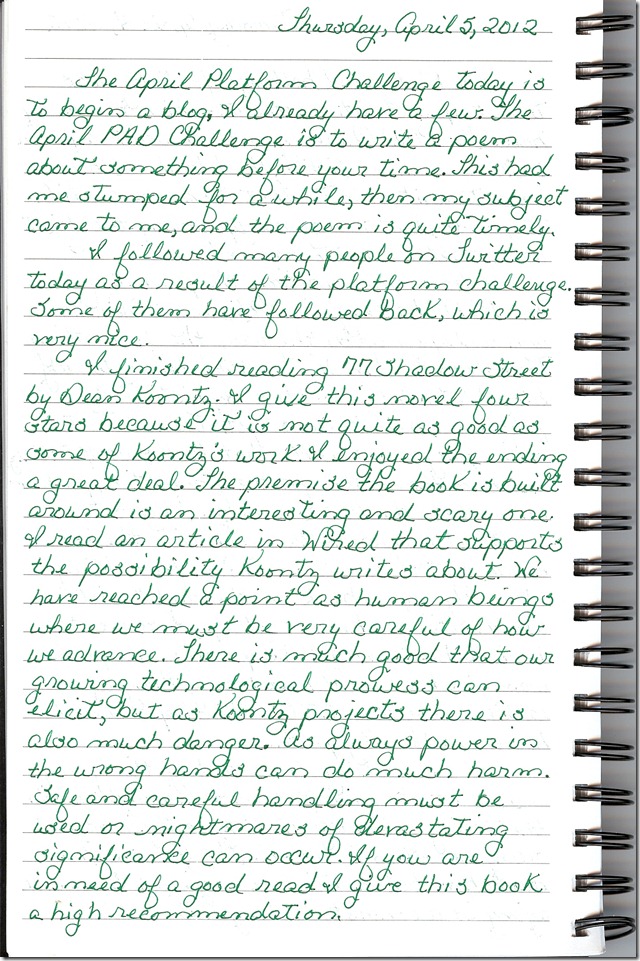 Thursday, April 5, 2012
The April Platform Challenge today is
to begin a blog, I already have a few. The
April PAD Challenge is to write a poem
about something before your time. This had
me stumped for a while, then my subject
came to me, and the poem is quite timely.
I followed many people on Twitter
today as a result of the platform challenge.
Some of them have followed back, which is
very nice.
I finished reading 77 Shadow Street
by Dean Koontz. I give this novel four
stars because it is not quite as good as
some of Koontz's work. I enjoyed the ending
a great deal. The premise the book is built
around is an interesting and scary one.
I read an article in Wired that supports
the possibility Koontz writes about. We
have reached a point as human beings
where we must be very careful of how
we advance. There is much good that our
growing technological prowess can
elicit, but as Koontz projects there is
also much danger. As always power in
the wrong hands can do much harm.
Safe and careful handling must be
used or nightmares of devastating
significance can occur. If you are
in need of a good read I give this book
a high recommendation.